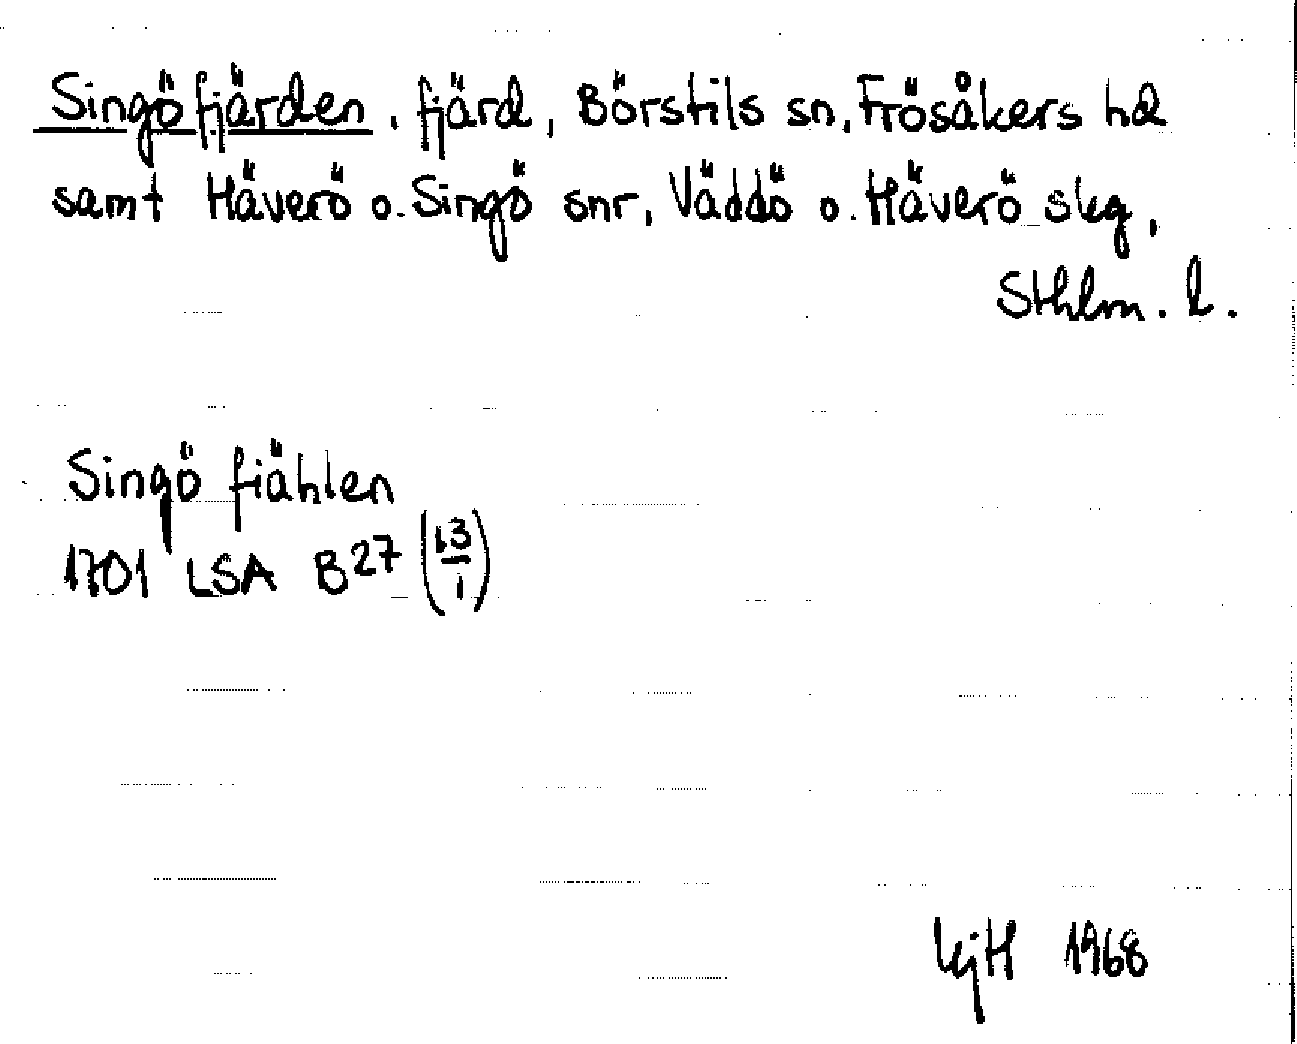 Singöfjärden, fjärd, Börstils sn, Frösåkers hd
samt Häverö o. Singö snr, Väddö o. Häverö skg,
Sthlm. l.
Singö fiählen
1701 LSA B27 (13/1)
KjH 1968